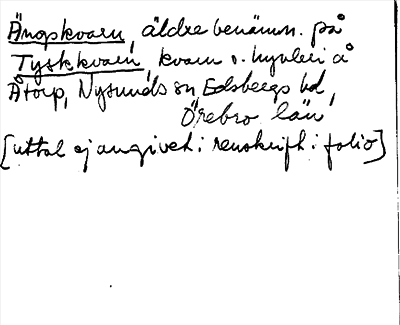 Ängskvarn, äldre benämn. på
Tyskkvarn, kvarn o. hyvleri å
Åtorp, Nysunds sn Edsbergs hd,
Örebro län
[uttal ej angivet i renskrift i folio]